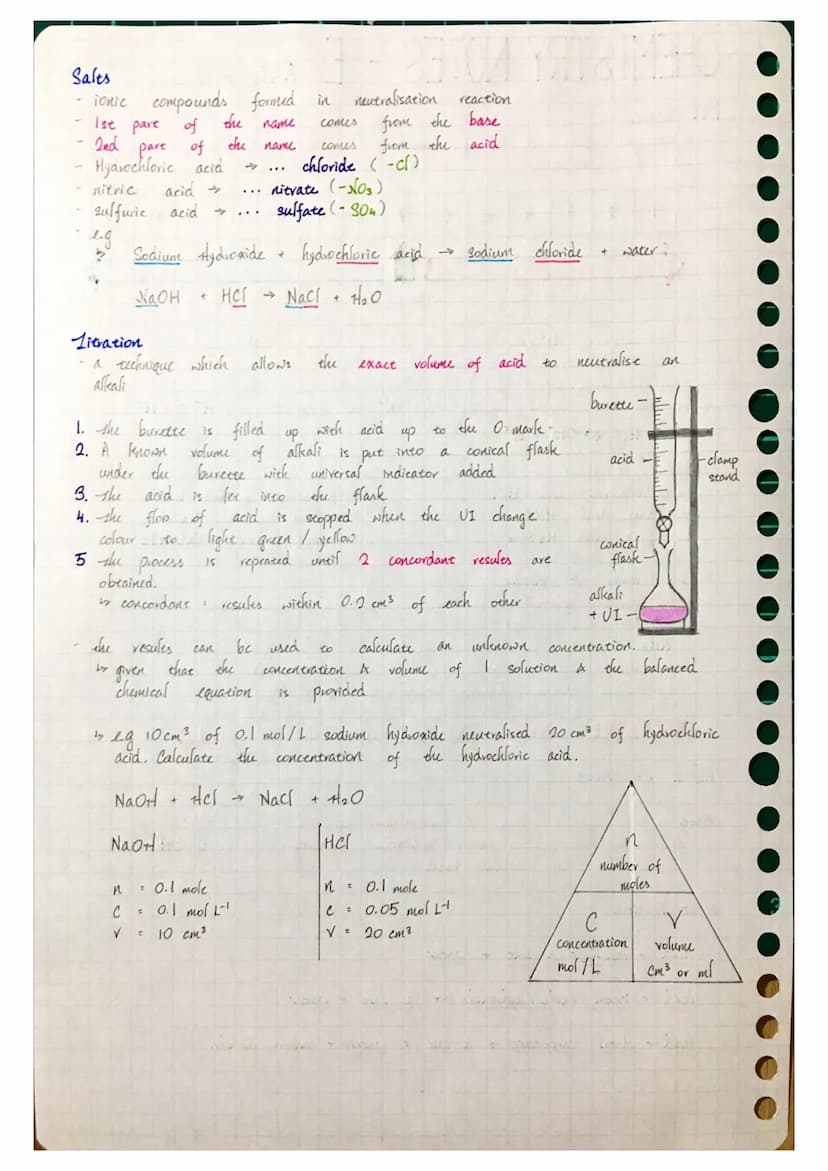 Salts
- ionic compounds formed in neutralisation reaction
- 1st part of the name comes from the base
- 2nd part of the name comes from the acid
- Hydrochloric acid → ... chloride (-Cl)
- nitric acid → ... nitrate (-NO₃)
- sulfuric acid → ... sulfate (-SO₄)
- e.g
↳ Sodium Hydroxide + hydrochloric acid → sodium chloride + water.
NaOH + HCl → NaCl + H₂O
Titration
- a technique which allows the exact volume of acid to neutralise an
alkali
1. the burette is filled up with acid up to the 0 mark.
2. A known volume of alkali is put into a conical flask
under the burette with universal indicator added
3. the acid is let into the flask
4. the flow of acid is stopped when the UI change
colour to light green / yellow
5 the process is repeated until 2 concordant results are
obtained.
↳ concordant : results within 0.2 cm³ of each other
burette
acid
clamp
stand
conical
flask
alkali
+ UI
- the results can be used to calculate an unknown concentration.
↳ given that the concentration & volume of 1 solution & the balanced
chemical equation is provided
↳ e.g 10cm³ of 0.1 mol/L sodium hydroxide neutralised 20 cm³ of hydrochloric
acid. Calculate the concentration of the hydrochloric acid.
NaOH + HCl → NaCl + H₂O
NaOH:
n = 0.1 mole
C = 0.1 mol L⁻¹
V = 10 cm³
HCl
n = 0.1 mole
c = 0.05 mol L⁻¹
V = 20 cm³
n
number of
moles
C
concentration
mol/L
V
volume
cm³ or ml